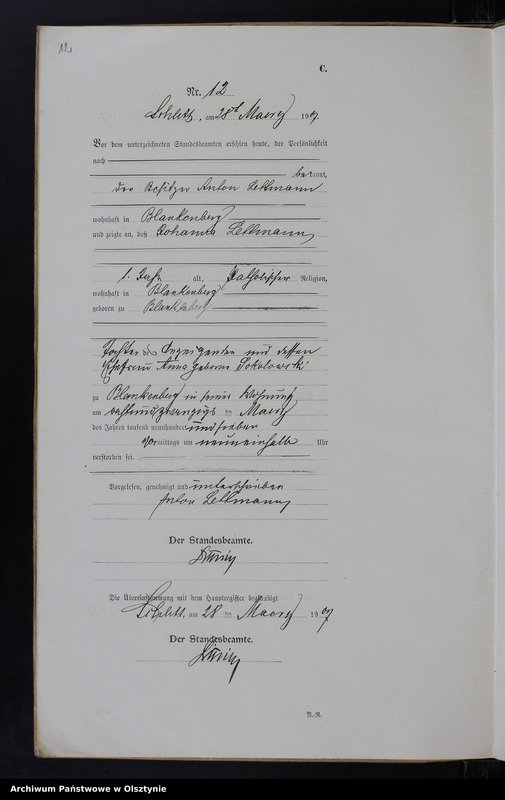 12
C.
Nr. 12
Schlitt, am 28ten Maerz 1907.
Vor dem unterzeichneten Standesbeamten erschien heute, der Persönlichkeit
nach
bekannt,
der Besitzer Anton Lettmann
wohnhaft in Blankenberg
und zeigte an, daß Johanna Lettmann,
1. Jahr alt, katholischer Religion,
wohnhaft in Blankenberg
geboren zu Blankenberg
Tochter des Anzeigenden und dessen
Ehefrau Anna geborene Sokolowski
zu Blankenberg in seiner Wohnung
am achtundzwanzigsten Maerz
des Jahres tausend neunhundert und sieben
Vormittags um neuneinhalb Uhr
verstorben sei.
Vorgelesen, genehmigt und unterschrieben
Anton Lettmann
Der Standesbeamte.
Die Übereinstimmung mit dem Hauptregister beglaubigt
Schlitt, am 28 ten Maerz 1907
Der Standesbeamte.
Archiwum Państwowe w Olsztynie